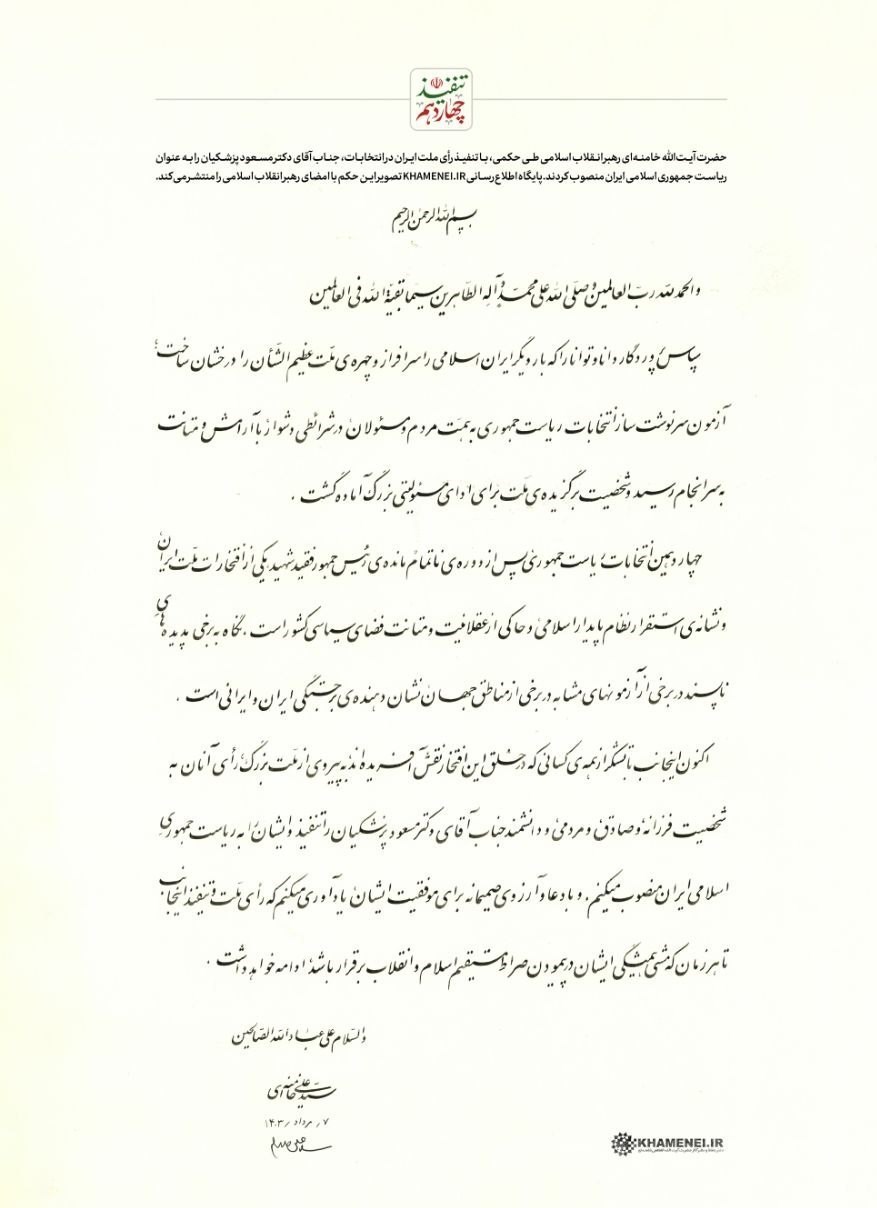 تنفیذ
چهاردهم
حضرت آیت‌الله خامنه‌ای رهبر انقلاب اسلامی طی حکمی، با تنفیذ رأی ملت ایران در انتخابات، جناب آقای دکتر مسعود پزشکیان را به عنوان
ریاست جمهوری اسلامی ایران منصوب کردند. پایگاه اطلاع‌رسانی KHAMENEI.IR تصویر این حکم با امضای رهبر انقلاب اسلامی را منتشر می‌کند.
بسم الله الرحمن الرحیم
و الحمد لله رب العالمین و صلّی الله علی محمّد و آله الطّاهرین سیّما بقیّة الله فی العالمین
سپاس پروردگار دانا و توانا را که بار دیگر ایران اسلامی را سرافراز و چهره‌ی ملّت عظیم‌الشّأن را درخشان ساخت؛
آزمون سرنوشت‌ساز انتخابات ریاست جمهوری به همّت مردم و مسئولان در شرائطی دشوار با آرامش و متانت
به سرانجام رسید و شخصیت برگزیده‌ی ملّت برای ادای مسئولیتی بزرگ آماده گشت .
چهاردهمین انتخابات ریاست جمهوری پس از دوره‌ی ناتمام مانده‌ی رئیس جمهور فقید شهید یکی از افتخارات ملّت ایران
و نشانه‌ی استقرار نظام پایدار اسلامی و حاکی از عقلانیت و متانت فضای سیاسی کشور است . نگاه به برخی پدیده‌های
ناپسند در برخی از آزمونهای مشابه در برخی از مناطق جهان نشان دهنده‌ی برجستگی ایران و ایرانی است .
اکنون اینجانب با تشکر از همه‌ی کسانی که در خلق این افتخار نقش آفریده‌اند به پیروی از ملّت بزرگ، رأی آنان به
شخصیت فرزانه و صادق و مردمی و دانشمند جناب آقای دکتر مسعود پزشکیان را تنفیذ و ایشان را به ریاست جمهوری
اسلامی ایران منصوب میکنم. و با دعا و آرزوی صمیمانه برای موفقیت ایشان یادآوری میکنم که رأی ملّت و تنفیذ اینجانب
تا هر زمان که مشی همیشگی ایشان در پیمودن صراط مستقیم اسلام و انقلاب برقرار باشد ادامه خواهد داشت .
والسّلام علی عباد الله الصّالحین
سیّد علی خامنه‌ای
۷ / مرداد / ۱۴۰۳
KHAMENEI.IR